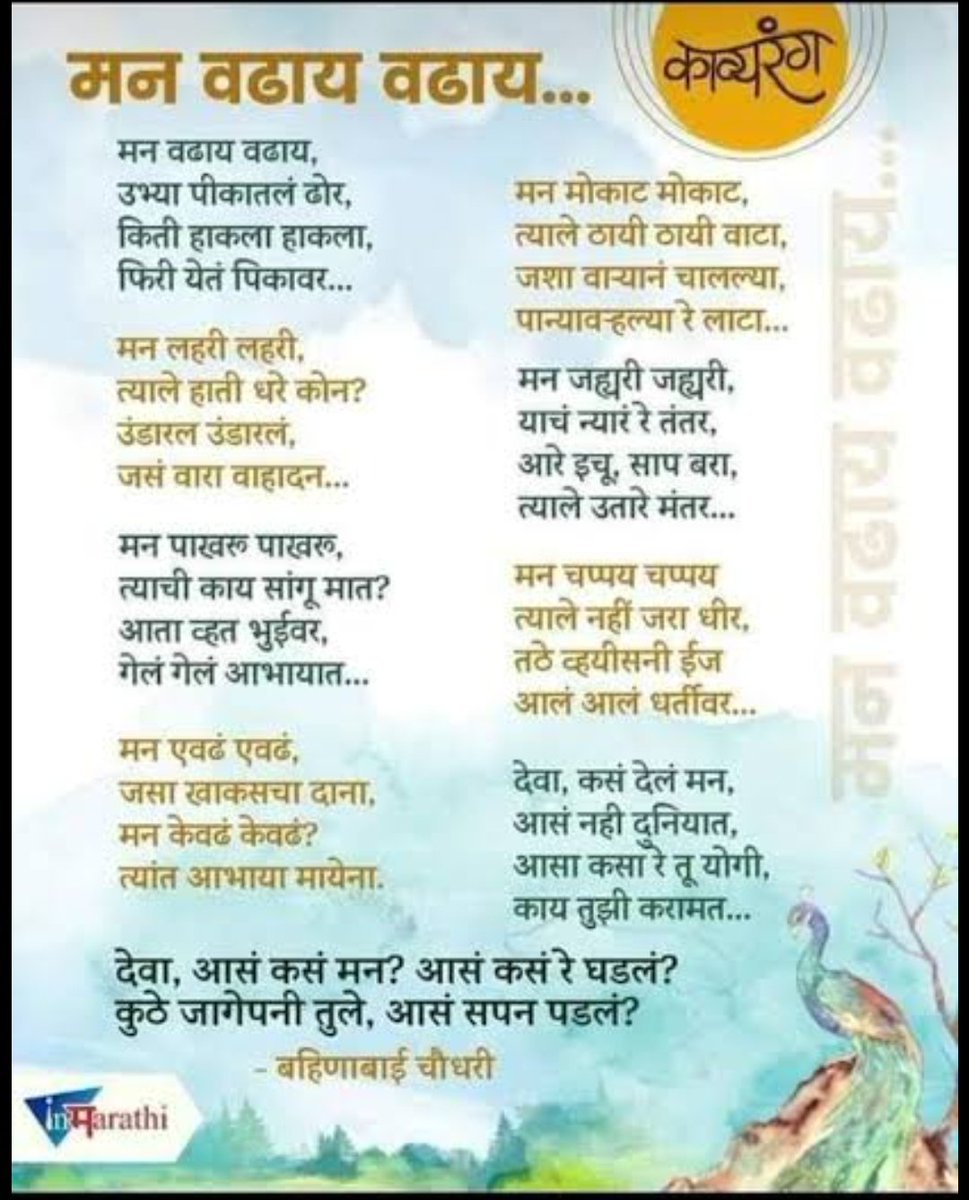 मन वढाय वढाय...
काव्यरंग
मन वढाय वढाय,
उभ्या पीकातलं ढोर,
किती हाकला हाकला,
फिरी येतं पिकावर...
मन लहरी लहरी,
त्याले हाती धरे कोन?
उंडारल उंडारलं,
जसं वारा वाहादन...
मन पाखरू पाखरू,
त्याची काय सांगू मात?
आता व्हत भुईवर,
गेलं गेलं आभायात...
मन एवढं एवढं,
जसा खाकसचा दाना,
मन केवढं केवढं?
त्यांत आभाया मायेना.
मन मोकाट मोकाट,
त्याले ठायी ठायी वाटा,
जशा वाऱ्यानं चालल्या,
पान्यावऱ्हल्या रे लाटा...
मन जह्यरी जह्यरी,
याचं न्यारं रे तंतर,
आरे इचू, साप बरा,
त्याले उतारे मंतर...
मन चप्पय चप्पय
त्याले नहीं जरा धीर,
तठे व्हयीसनी ईज
आलं आलं धर्तीवर...
देवा, कसं देलं मन,
आसं नही दुनियात,
आसा कसा रे तू योगी,
काय तुझी करामत...
देवा, आसं कसं मन? आसं कसं रे घडलं?
कुठे जागेपनी तुले, आसं सपन पडलं?
- बहिणाबाई चौधरी
मन वढाय वढाय...
inमarathi